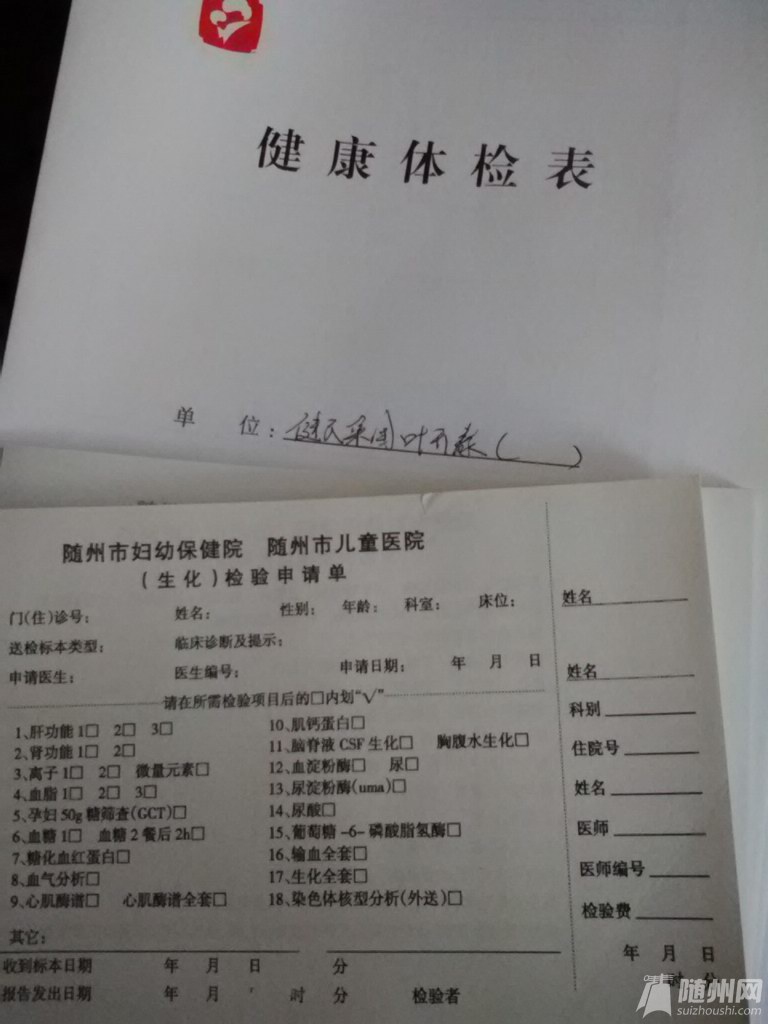 健康体检表
单 位：健民集团叶开泰（ ）
随州市妇幼保健院 随州市儿童医院
（生化）检验申请单
门(住)诊号： 姓名： 性别： 年龄： 科室： 床位：
送检标本类型： 临床诊断及提示：
申请医生： 医生编号： 申请日期： 年 月 日
请在所需检验项目后的□内划“√”
1、肝功能 1□ 2□ 3□
2、肾功能 1□ 2□
3、离子 1□ 2□ 微量元素□
4、血脂 1□ 2□ 3□
5、孕妇 50g 糖筛查(GCT)□
6、血糖 1□ 血糖 2 餐后 2h□
7、糖化血红蛋白□
8、血气分析□
9、心肌酶谱□ 心肌酶谱全套□
10、肌钙蛋白□
11、脑脊液 CSF 生化□ 胸腹水生化□
12、血淀粉酶□ 尿□
13、尿淀粉酶(uma)□
14、尿酸□
15、葡萄糖-6-磷酸脂氢酶□
16、输血全套□
17、生化全套□
18、染色体核型分析(外送)□
其它：
收到标本日期 年 月 日 分
报告发出日期 年 月 时 分 检验者
姓名
姓名
科别
住院号
姓名
医师
医师编号
检验费
年 月 日
时 分
随州网
suizhoushi.com